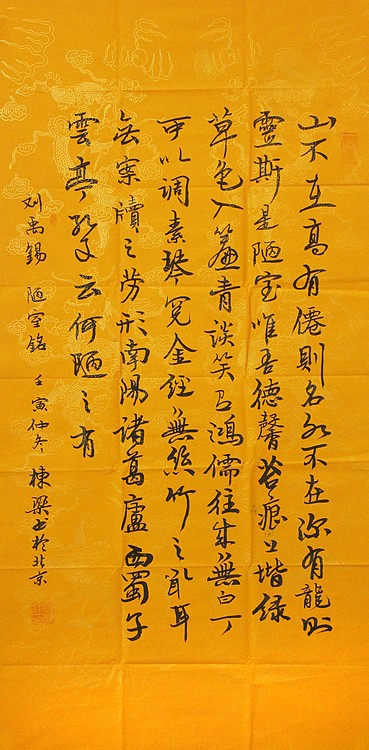 山不在高有僊則名水不在深有龍則
靈斯是陋室唯吾德馨苔痕上堦綠
草色入簾青談笑有鴻儒往來無白丁
可以調素琴閱金經無絲竹之亂耳
無案牘之勞形南陽諸葛廬西蜀子
雲亭孔子云何陋之有
刘禹錫 陋室銘 壬寅仲冬 棟樑书於北京